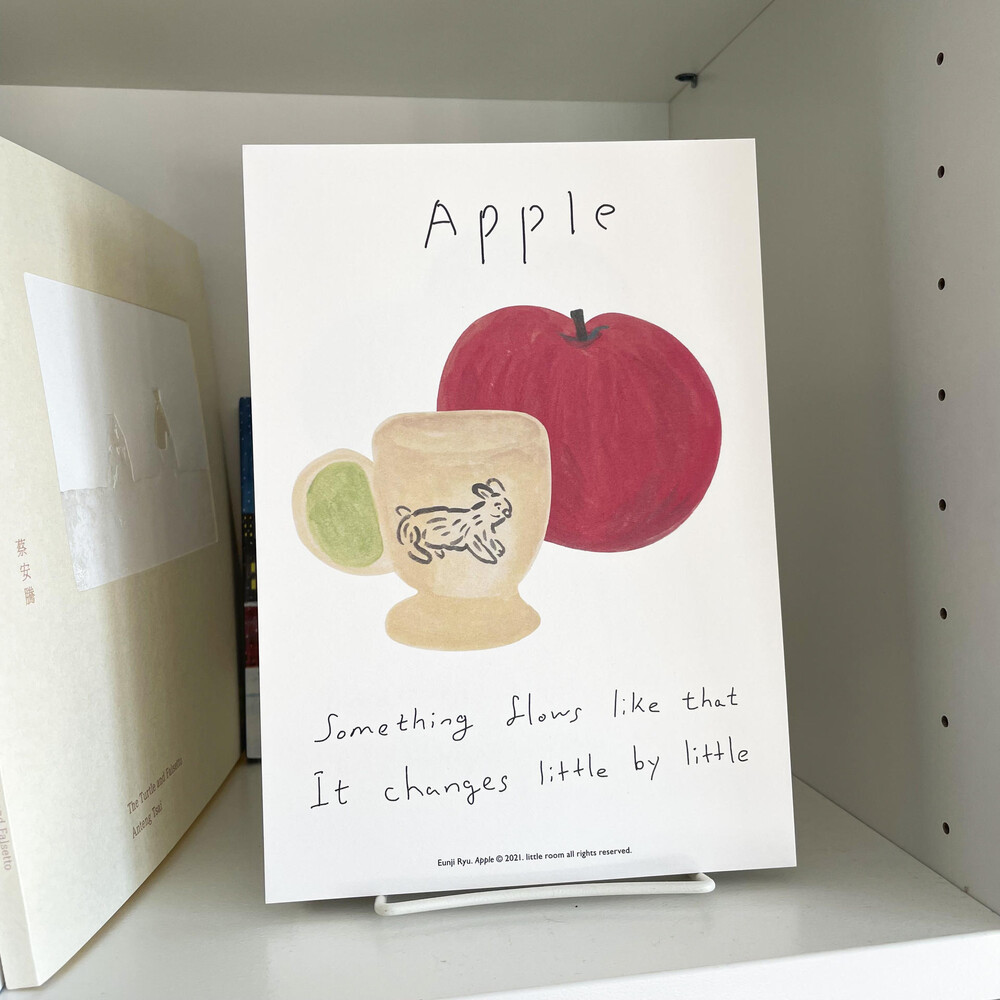 Apple
Something flows like that
It changes little by little
Eunji Ryu. Apple © 2021. little room all rights reserved.
蔡安騰
The Turtle and Falsetto
Anteng Tsai